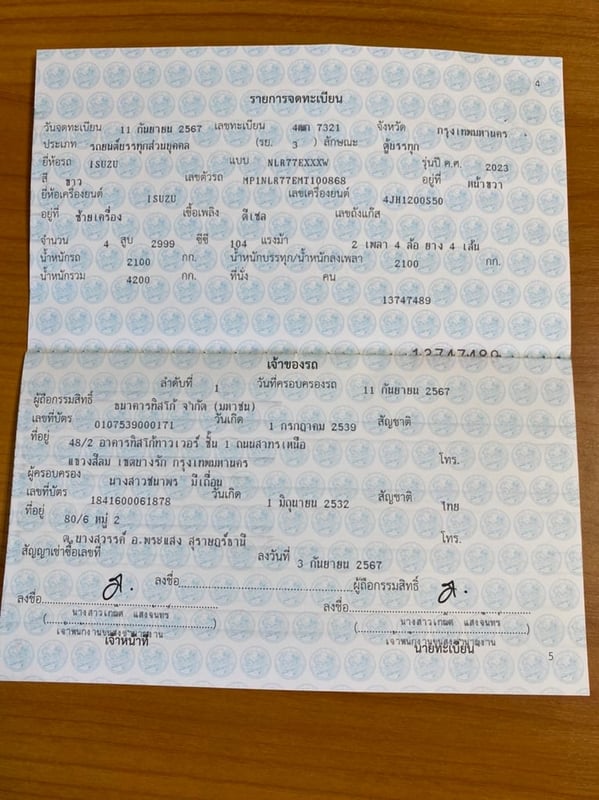 4
รายการจดทะเบียน
วันจดทะเบียน 11 กันยายน 2567 เลขทะเบียน 4ฒฒ 7321 จังหวัด กรุงเทพมหานคร
ประเภท รถยนต์บรรทุกส่วนบุคคล (รย. 3 ) ลักษณะ ตู้บรรทุก
ยี่ห้อรถ ISUZU แบบ NLR77EXXXW รุ่นปี ค.ศ. 2023
สี ขาว เลขตัวรถ MP1NLR77EMT100868 อยู่ที่ หน้าขวา
ยี่ห้อเครื่องยนต์ ISUZU เลขเครื่องยนต์ 4JH1200S50
อยู่ที่ ซ้ายเครื่อง เชื้อเพลิง ดีเซล เลขถังแก๊ส
จำนวน 4 สูบ 2999 ซีซี 104 แรงม้า 2 เพลา 4 ล้อ ยาง 4 เส้น
น้ำหนักรถ 2100 กก. น้ำหนักบรรทุก/น้ำหนักลงเพลา 2100 กก.
น้ำหนักรวม 4200 กก. ที่นั่ง คน
13747489
13747489
เจ้าของรถ
ลำดับที่ 1 วันที่ครอบครองรถ 11 กันยายน 2567
ผู้ถือกรรมสิทธิ์ ธนาคารทิสโก้ จำกัด (มหาชน)
เลขที่บัตร 0107539000171 วันเกิด 1 กรกฎาคม 2539 สัญชาติ
ที่อยู่ 48/2 อาคารทิสโก้ทาวเวอร์ ชั้น 1 ถนนสาทรเหนือ
แขวงสีลม เขตบางรัก กรุงเทพมหานคร โทร.
ผู้ครอบครอง นางสาวชนาพร มีเถื่อน
เลขที่บัตร 1841600061878 วันเกิด 1 มิถุนายน 2532 สัญชาติ ไทย
ที่อยู่ 80/6 หมู่ 2
ต.บางสวรรค์ อ.พระแสง สุราษฎร์ธานี โทร.
สัญญาเช่าซื้อเลขที่ ลงวันที่ 3 กันยายน 2567
ลงชื่อ ผู้ถือกรรมสิทธิ์
ลงชื่อ ลงชื่อ
( นางสาวเกณิศ แสงจันทร์ ) ( นางสาวเกณิศ แสงจันทร์ )
เจ้าพนักงานขนส่งชำนาญงาน เจ้าพนักงานขนส่งชำนาญงาน
เจ้าหน้าที่ นายทะเบียน
5